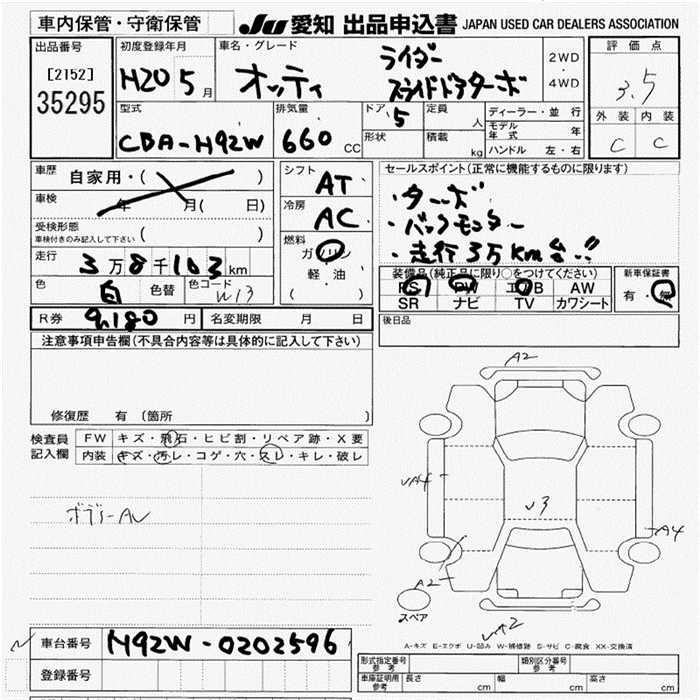 車内保管・守衛保管
JU 愛知 出品申込書 JAPAN USED CAR DEALERS ASSOCIATION
出品番号
[2152]
35295
初度登録年月
H20 5月
車名・グレード
オッティ
ライダー
スライドドアターボ
2WD
・
4WD
評価点
3.5
外装 内装
C C
型式
CBA-H92W
排気量
660 CC
ドア
5
形状
定員
人
積載
kg
ディーラー・並行
モデル年式 年
ハンドル 左・右
車歴
自家用・( )
車検
年 月( 日)
受検形態
車検付きのみ記入して下さい ( )
走行
3万8千103km
色
白
色替
色コード
W13
シフト
AT
冷房
AC
燃料
ガソリン
軽・油
( )
セールスポイント(正常に機能するものに限ります)
・ターボ
・バックモニター
・走行3万km台!!
装備品(純正品に限り○をつけてください)
PS PW エAB AW
SR ナビ TV カワシート
新車保証書
有・無
R券 9,180 円
名変期限 月 日
後日品
注意事項申告欄(不具合内容等は具体的に記入して下さい)
修復歴 有(箇所
検査員
記入欄
FW キズ・飛石・ヒビ割・リペア跡・X要
内装 キズ・汚レ・コゲ・穴・スレ・キレ・破レ
A2
A4
U3
A4
A2
スペア
A2
A-キズ E-エクボ U-凹み W-補修跡 S-サビ C-腐食 XX-交換済
車台番号 H92W-0202596
登録番号
形式指定番号
参考
類別区分番号
参考
車庫証明用
参考
長さ cm 幅 cm 高さ cm